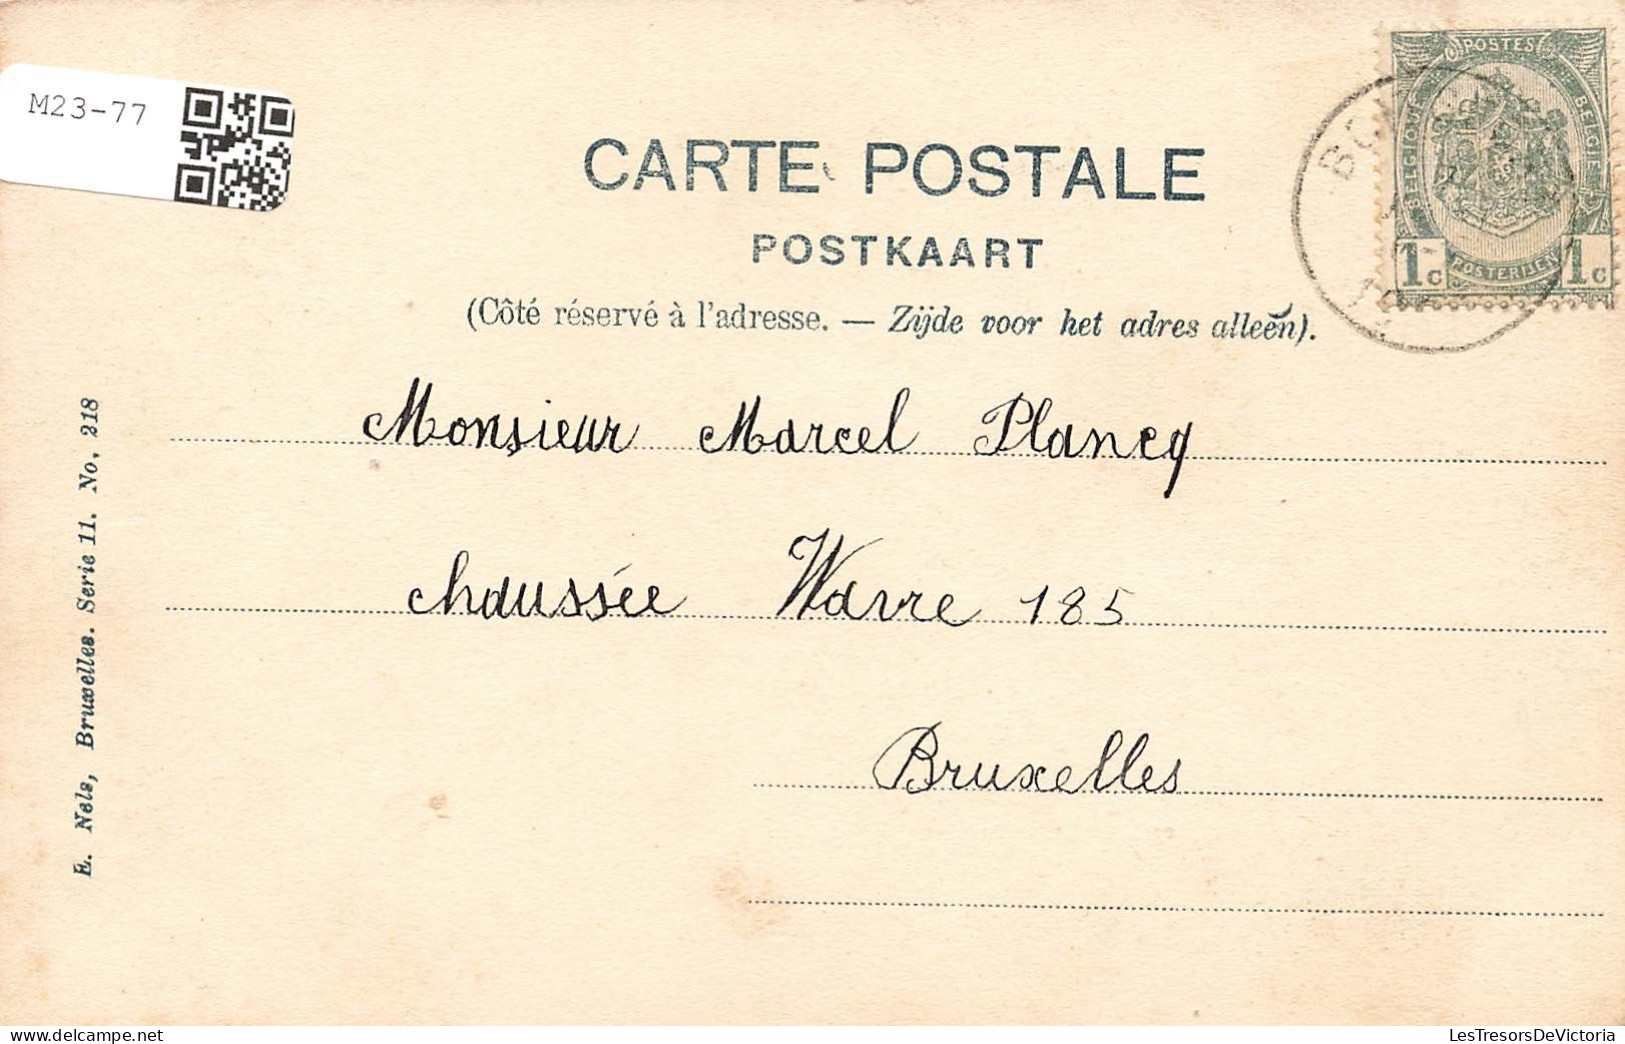 M23-77
CARTE POSTALE
POSTKAART
(Côté réservé à l'adresse. — Zijde voor het adres alleen).
POSTES
BELGIQUE
BELGIE
1c POSTERIJEN 1c
Monsieur Marcel Plancq
chaussée Wavre 185
Bruxelles
E. Nels, Bruxelles. Serie 11. No, 218
LesTresorsDeVictoria